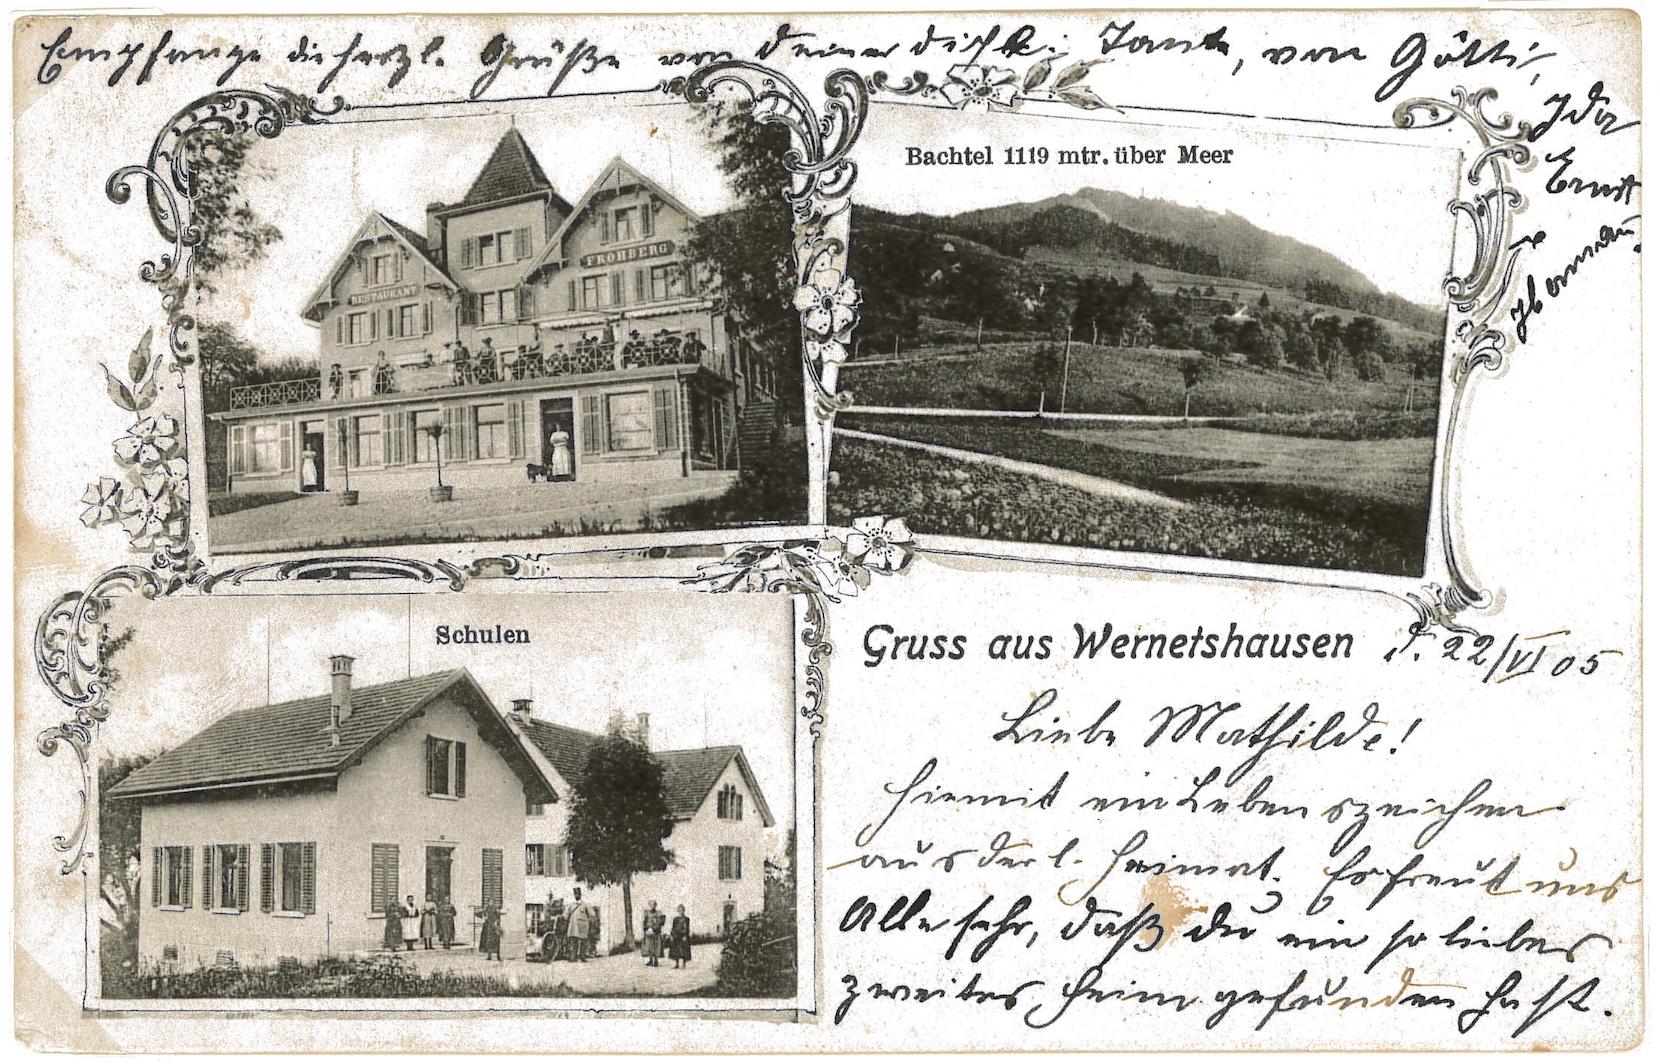 Empfange die herzl. Grüße von Deiner Dich l. Tante, von Götti,
Ida
Ernst
Hermann.
Bachtel 1119 mtr. über Meer
RESTAURANT
FROHBERG
Schulen
Gruss aus Wernetshausen d. 22/VI 05
Liebe Mathilde!
Hiemit ein Lebenszeichen
aus der l. Heimat. Es freut uns
Alle sehr, daß du ein so liebes
zweites Heim gefunden hast.